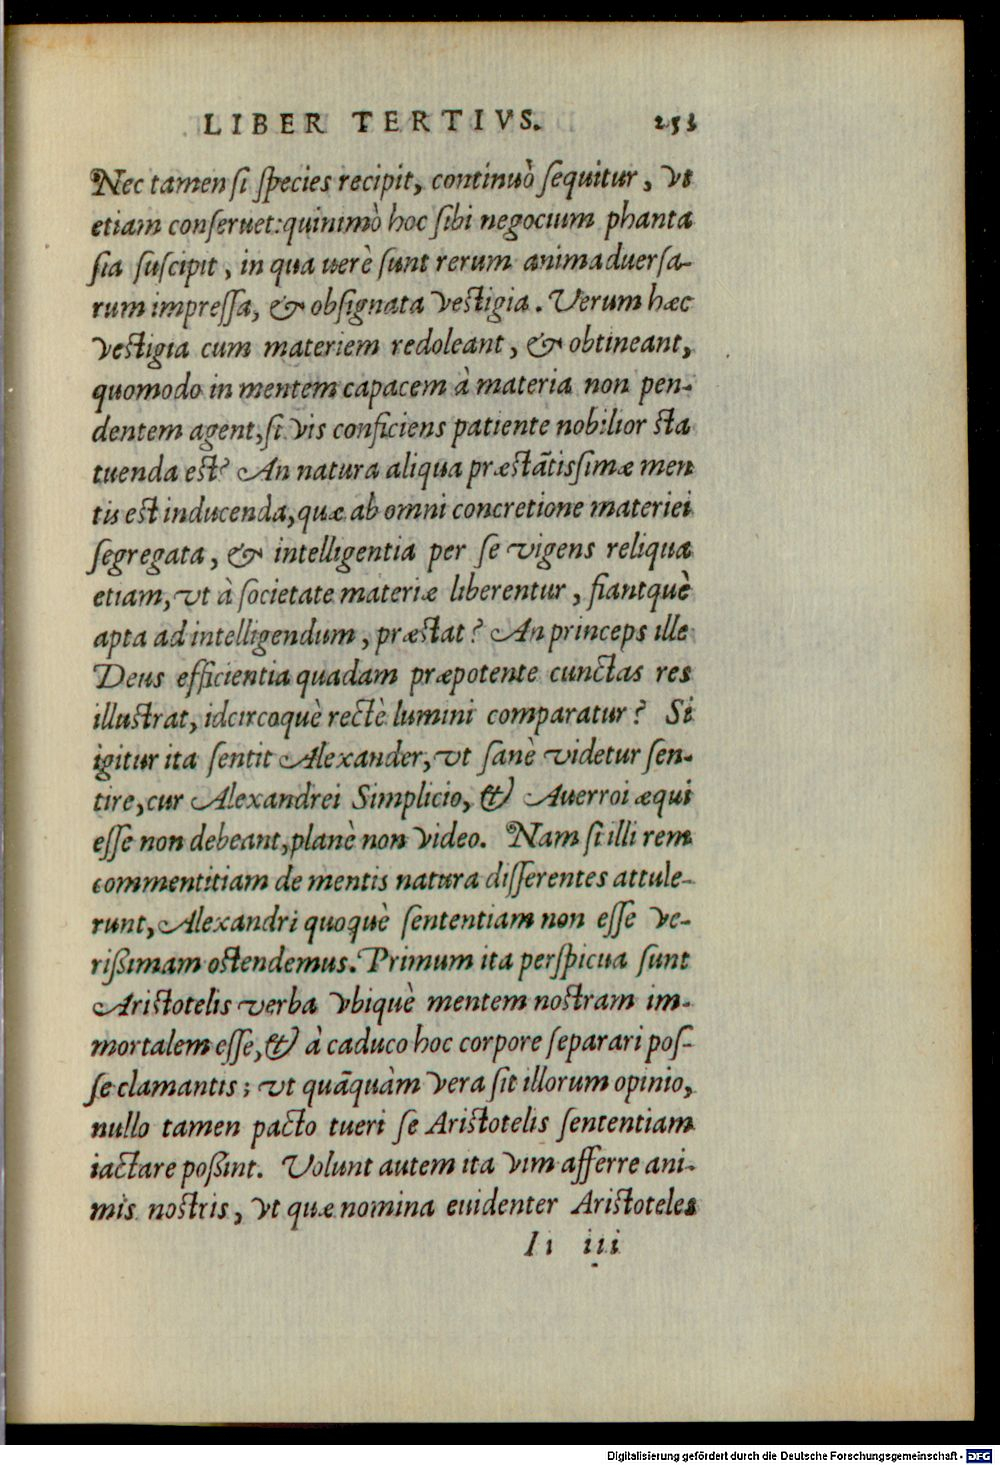 LIBER TERTIVS. 253
Nec tamen si species recipit, continuò sequitur, vt
etiam conseruet: quinimò hoc sibi negocium phanta
sia suscipit, in qua uerè sunt rerum animaduersa-
rum impressa, & obsignata vestigia. Verum hæc
vestigia cum materiem redoleant, & obtineant,
quomodo in mentem capacem à materia non pen-
dentem agent, si vis conficiens patiente nobilior sta
tuenda est? An natura aliqua præstātissimæ men
tis est inducenda, quæ ab omni concretione materiei
segregata, & intelligentia per se vigens reliqua
etiam, vt à societate materiæ liberentur, fiantquè
apta ad intelligendum, præstat? An princeps ille
Deus efficientia quadam præpotente cunctas res
illustrat, idcircoquè rectè lumini comparatur? Si
igitur ita sentit Alexander, vt sanè videtur sen-
tire, cur Alexandrei Simplicio, & Auerroi æqui
esse non debeant, planè non video. Nam si illi rem
commentitiam de mentis natura differentes attule-
runt, Alexandri quoquè sententiam non esse ve-
rißimam ostendemus. Primum ita perspicua sunt
Aristotelis verba vbiquè mentem nostram im-
mortalem esse, & à caduco hoc corpore separari pos-
se clamantis; vt quāquàm vera sit illorum opinio,
nullo tamen pacto tueri se Aristotelis sententiam
iactare poßint. Volunt autem ita vim afferre ani-
mis nostris, vt quæ nomina euidenter Aristoteles
Ii iii
Digitalisierung gefördert durch die Deutsche Forschungsgemeinschaft - DFG